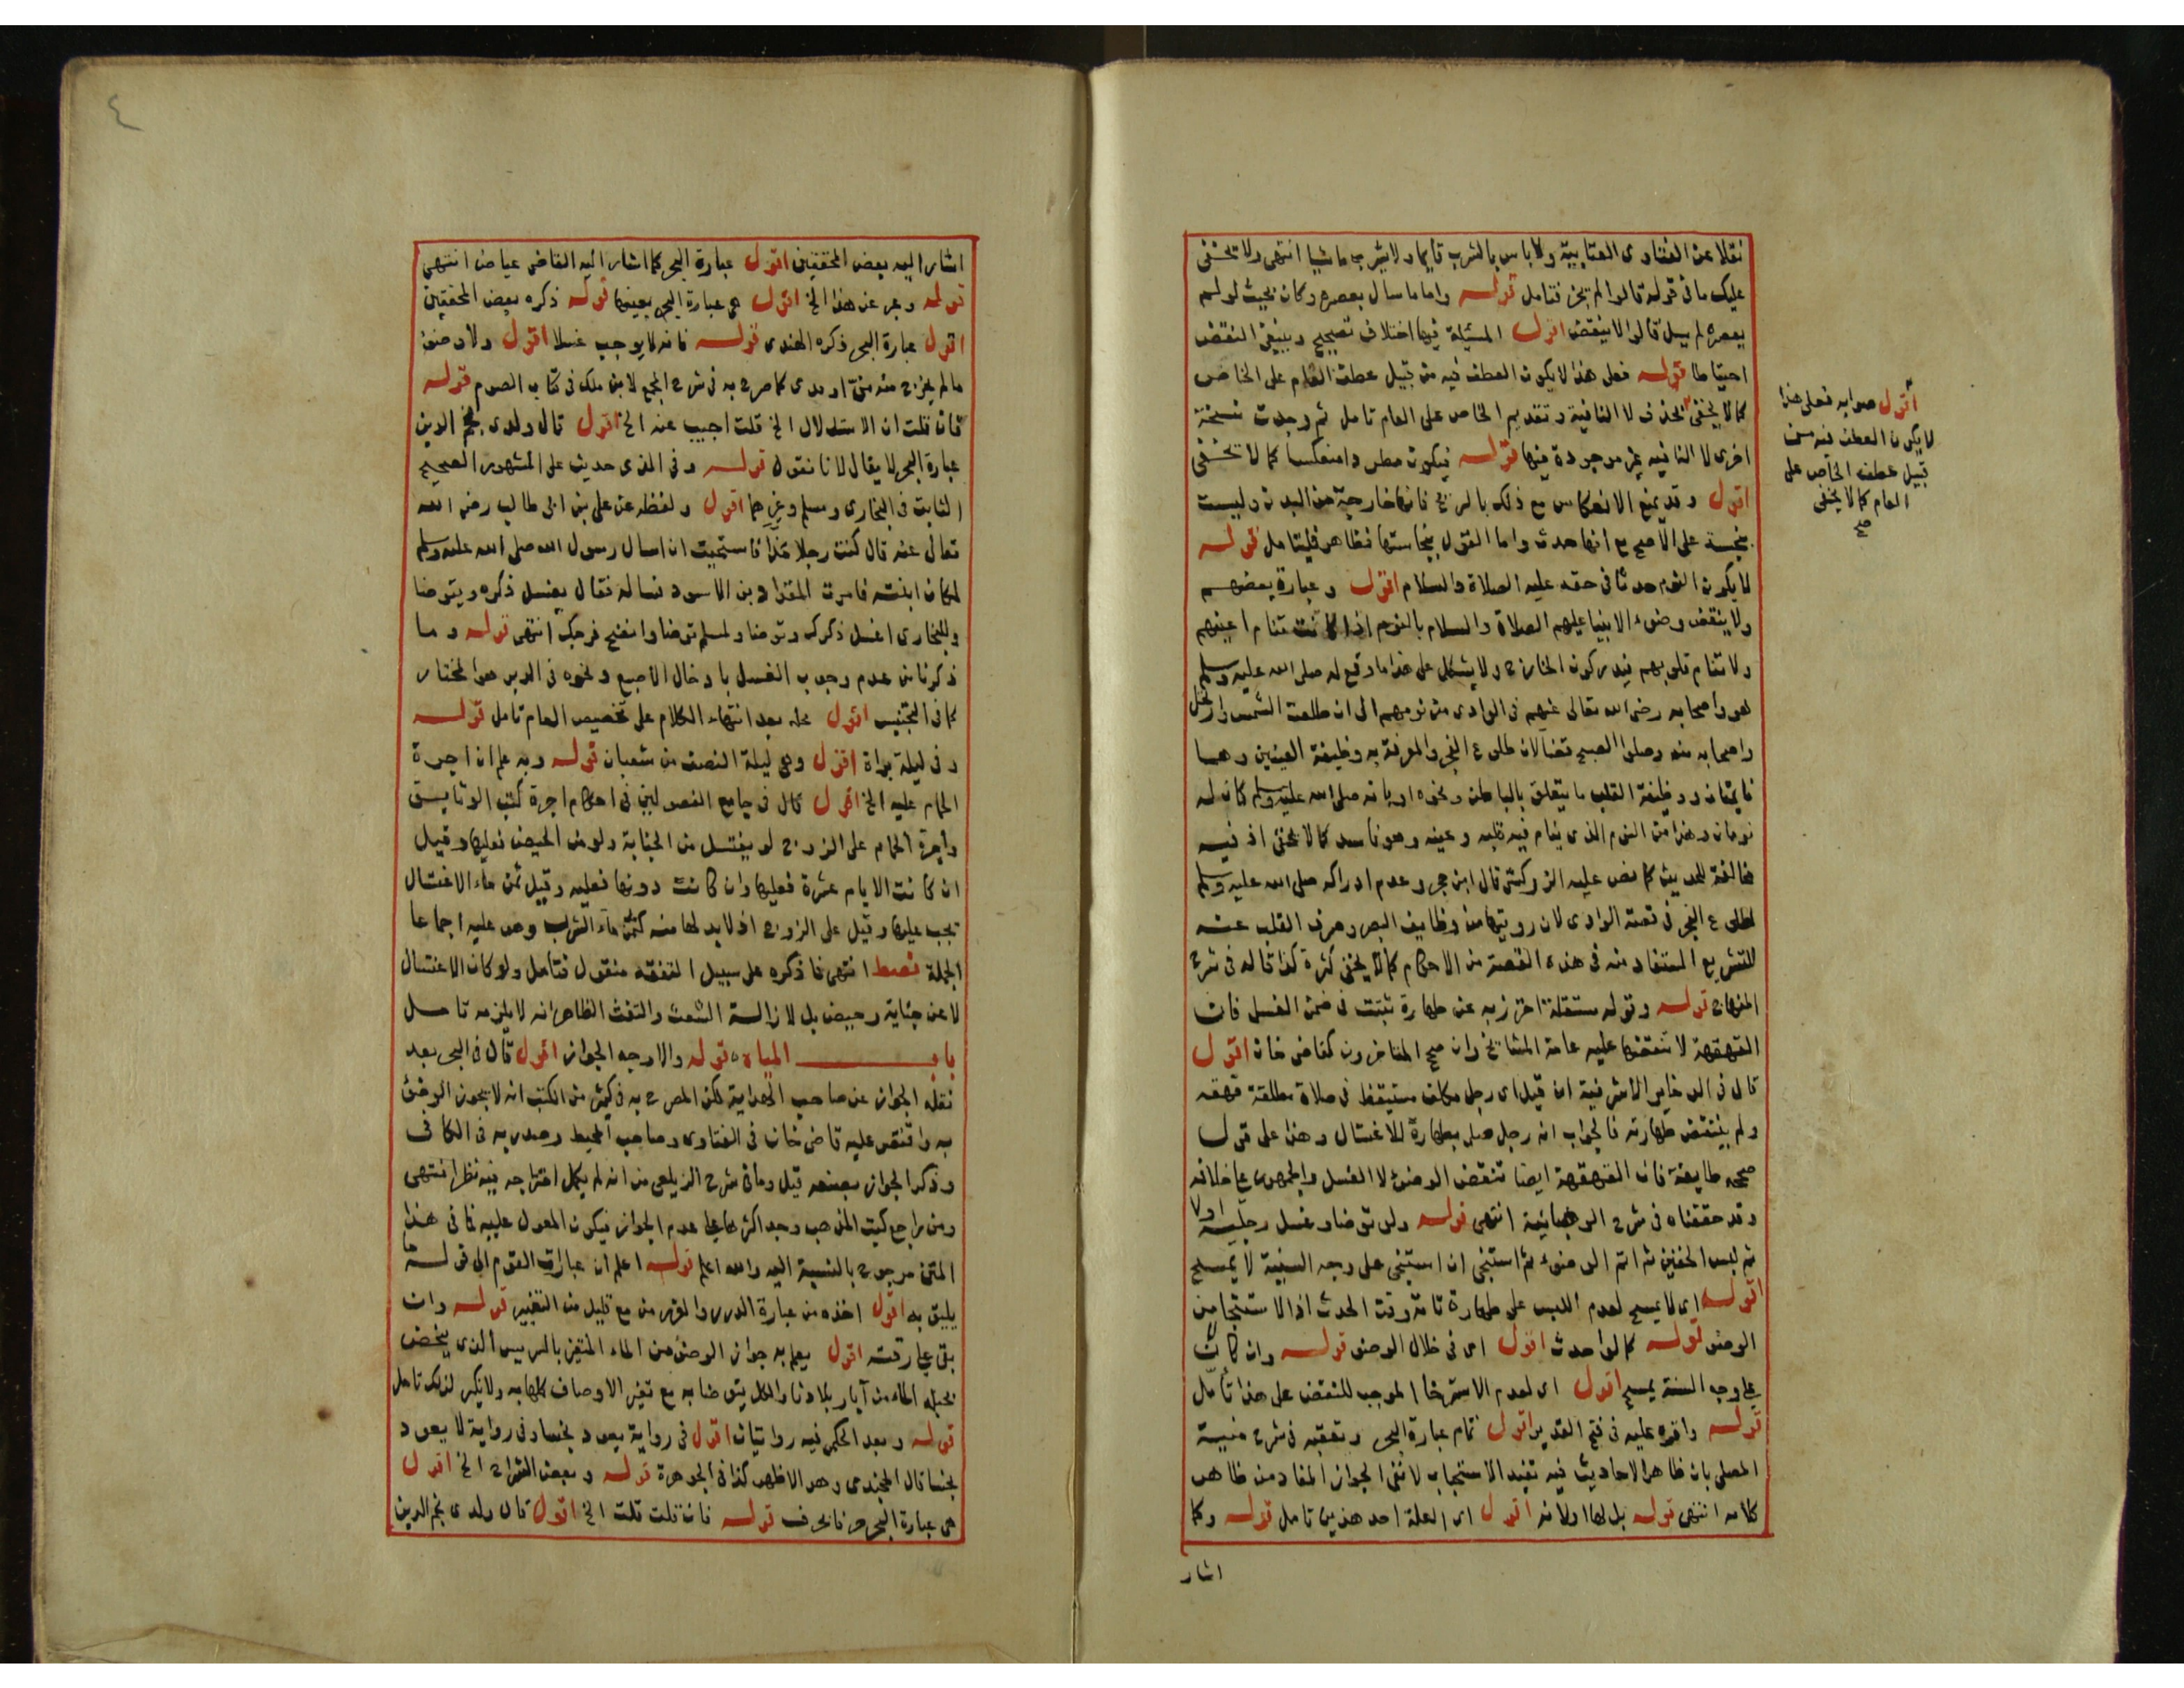 نقلا عن الفتاوى العتابية ولا باس بالشرب قايما ولا يشرب ماشيا انتهى ولا يخفى
عليك ما فى قوله قالوا لم يجز فتامل قوله واما ما سال بعصره وكان بحيث لو لم
يعصره لم يسل قالوا لا ينقض اقول المسئلة فيها اختلاف تصحيح وينبغى النقض
احتياطا قوله فعلى هذا لا يكون العطف فيه من قبيل عطف العام على الخاص
كما لا يخفى بحذف لا النافية وتقديم الخاص على العام تامل ثم وجدت نسخة
اخرى لا النافيه غير موجودة فيها قوله فيكون مطردا منعكسا كما لا يخفى
اقول وقد يمنع الانعكاس مع ذلك بالريح فانها خارجة من البدن وليست
بنجسة على الاصح مع انها حدث واما القول بنجاستها فظاهر فليتامل قوله
لا يكون النوم حدثا فى حقه عليه الصلاة والسلام اقول وعبارة بعضهم
ولا ينتقض وضوء الانبيا عليهم الصلاة والسلام بالنوم اذا كانت تنام اعينهم
ولا تنام قلوبهم فيدركون الخارج ولا يشكل على هذا ما وقع له صلى الله عليه وسلم
هو واصحابه رضى الله تعالى عنهم فى الوادى من نومهم الى ان طلعت الشمس وارتحل
واصحابه منه وصلوا الصبح قضا لان طلوع الفجر والمعرفة به وظيفة العينين وهما
نايمتان ووظيفة القلب ما يتعلق بالباطن ونحوه او بانه صلى الله عليه وسلم كان له
نومان وهذا من النوم الذى ينام فيه قلبه وعينه وهو فاسد كما لا يخفى اذ فيه
مخالفة للحديث كما نص عليه الزركشى قال ابن حجر وعدم ادراكه صلى الله عليه وسلم
لطلوع الفجر فى قصة الوادى لان رويتها من وظايف البصر وصرف القلب عنه
للتشريع المستفاد منه فى هذه القصة من الاحكام كما لا يخفى كثرة كذا قاله فى شرح
المنهاج قوله وقوله مستقلة احترز به عن طهارة ثبتت فى ضمن الغسل فان
القهقهة لا تنقضها عليه عامة المشايخ وان صحح المتاخرون كقاضى خان اقول
قال فى الذخاير الاشرفية ان قيل اى رجل مكلف مستيقظ فى صلاة مطلقة قهقه
ولم ينتقض طهارته فالجواب انه رجل صلى بطهارة الاغتسال وهذا على قول
صححه طايفة فان القهقهة ايضا تنقض الوضوء لا الغسل والجمهور على خلافه
وقد حققناه فى شرح الوهبانية انتهى قوله ولو توضا وغسل رجليه اولا
ثم لبس الخفين ثم اتم الوضوء ثم استنجى ان استنجى على وجه السنية لا يمسح
اقول اى لا يمسح لعدم اللبس على طهارة تامة وقت الحدث اذ الاستنجا من
الوضو قوله كما لو احدث اقول اى فى خلال الوضو قوله وان كان
على وجه السنة يمسح اقول اى لعدم الاسترخا الموجب للنقض على هذا تامل
قوله واقره عليه فى فتح القدير اقول تمام عبارة البحر وتعقبه فى شرح منية
المصلى بان ظاهر الاحاديث فيه تفيد الاستحباب لا نفى الجواز المفاد من ظاهر
كلامه انتهى قوله بل لها اولا منه اقول اى العلة احد هذين تامل قوله وكما
اشار
أقول صوابه فعلى هذا
لا يكون العطف فيه من
قبيل عطف الخاص على
العام كما لا يخفى
صح
٤
اشار اليه بعض المحققين اقول عبارة البحر كما اشار اليه القاضى عياض انتهى
قوله وعبر عن هذا الخ اقول هى عبارة البحر بعينها قوله ذكره بعض المحققين
اقول عبارة البحر ذكره الهندى قوله فانه لا يوجب غسلا اقول ولا وضوء
ما لم يخرج منه منى او مدى كما صرح به فى شرح المجمع لابن ملك فى كتاب الصوم قوله
فان قلت ان الاستدلال الخ قلت اجيب عنه الخ اقول قال ولدى نجم الدين
عبارة البحر لا يقال لانا نقول قوله وفى المذى حديث على المشهور الصحيح
الثابت فى البخارى ومسلم وغيرهما اقول ولفظه عن على بن ابى طالب رضى الله
تعالى عنه قال كنت رجلا مذا فاستحيت ان اسال رسول الله صلى الله عليه وسلم
لمكان ابنته فامرت المقداد بن الاسود فساله فقال يغسل ذكره ويتوضا
وللبخارى اغسل ذكرك وتوضا ولمسلم توضا وانضح فرجك انتهى قوله وما
ذكرنا من عدم وجوب الغسل بادخال الاصبع ونحوه فى الدبر هو المختار
كما فى التجنيس اقول محله بعد انتهاء الكلام على تخصيص العام تامل قوله
وفى ليلة براة اقول وهى ليلة النصف من شعبان قوله وبه علم ان اجرة
الحمام عليه الخ اقول قال فى جامع الفصولين فى احكام اجرة كتب الوثايق
واجرة الحمام على الزوج لو يغتسل من الجنابة ولو من الحيض فعليها وقيل
ان كانت الايام عشرة فعليها وان كانت دونها فعليه وقيل ثمن ماء الاغتسال
يجب عليها وقيل على الزوج اذ لا بد لها منه كثمن ماء الشراب وهو عليه اجماعا
الجملة انتهى فما ذكره على سبيل التفقه منقول فتامل ولو كان الاغتسال
لا عن جنابة وحيض بل لازالة الشعث والتفث الظاهر انه لا يلزمه تامل
باب المياه قوله والاوجه الجواز اقول قال فى البحر بعد
نقله الجواز عن صاحب الهداية لكن المصرح به فى كثير من الكتب انه لا يجوز الوضوء
به واقتصر عليه قاضى خان فى الفتاوى وصاحب المحيط وصدر به فى الكافى
وذكر الجواز بصيغه قيل وما فى شرح الزيلعى من انه لم يكمل امتزاجه ففيه نظر انتهى
ومن راجع كتب المذهب وجد اكثرها على عدم الجواز فيكون المعول عليه فما فى هذا
المتن مرجوح بالنسبة اليه والله اعلم قوله اعلم ان عبارات القوم الى قوله
يليق به اقول اخذه من عبارة الدرر والغرر من مع قليل من التغيير قوله وان
بقى على رقته اقول يعلم به جواز الوضوء من الماء المتغير بالسريس الذى
الماء من آبار بلادنا والكل يتوضا به مع تغير الاوصاف كلها به ولا نكير لذلك تامل
قوله وبعد الحكم فيه روايتان اقول فى رواية يعود نجسا وفى رواية لا يعود
نجسا قال الخجندى وهو الاظهر كذا فى الجوهرة قوله وبعض الشراح الخ اقول
هى عبارة البحر قوله فان قلت قلت الخ اقول قال ولدى نجم الدين